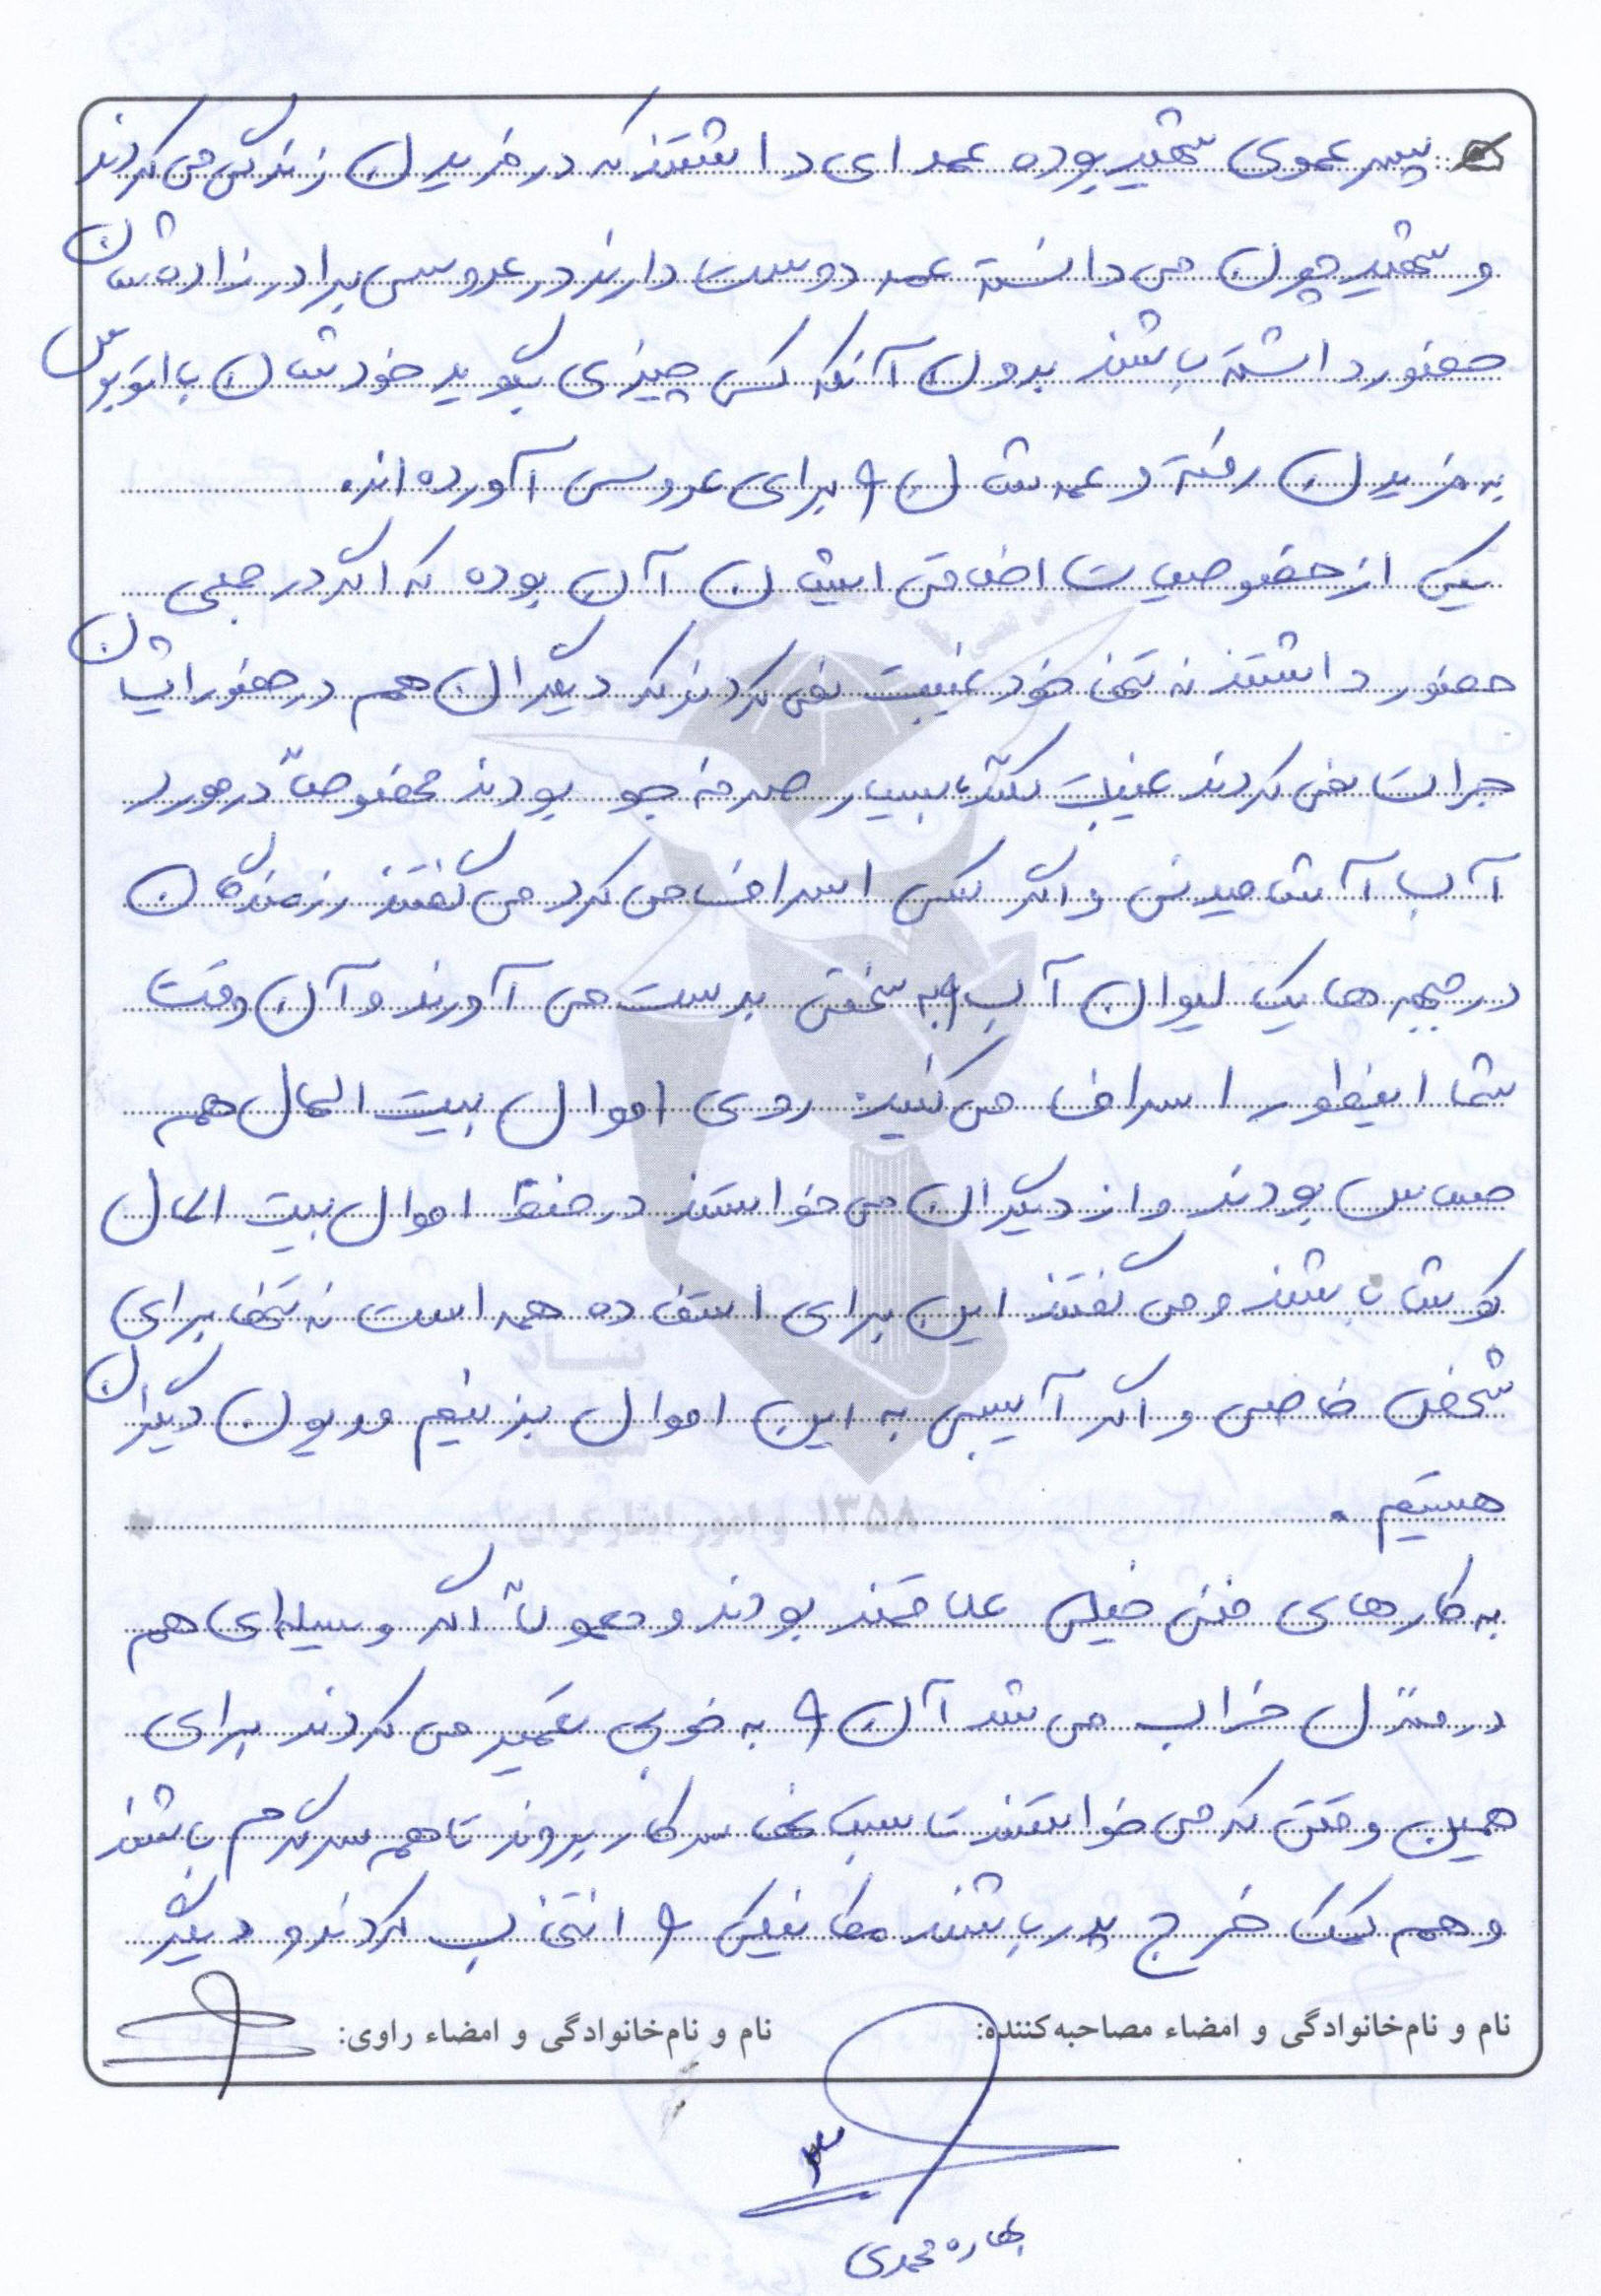 پسر عموی شهید بوده عمه ای داشتند که در فریدن زندگی می کردند
و شهید چون می دانسته عمه دوست دارند در عروسی برادرزاده شان
حضور داشته باشند بدون آنکه کسی چیزی بگوید خودشان با اتوبوس
به فریدن رفته و عمه شان را برای عروسی آورده اند.
یکی از خصوصیات اخلاقی ایشان آن بوده که اگر در جمعی
حضور داشتند نه تنها خود غیبت نمی کردند که دیگران هم در حضور ایشان
جرات نمی کردند غیبت بکنند بسیار صرفه جو بودند مخصوصاً در مورد
آب آشامیدنی و اگر کسی اسراف می کرد می گفتند رزمندگان
در جبهه ها یک لیوان آب را به سختی بدست می آورند و آن وقت
شما اینطور اسراف می کنید. روی اموال بیت المال هم
حساس بودند و از دیگران می خواستند در حفظ اموال بیت المال
کوشا باشند و می گفتند این برای استفاده همه است نه تنها برای
شخص خاصی و اگر آسیبی به این اموال بزنیم مدیون دیگران
هستیم.
به کارهای فنی خیلی علاقمند بودند و معمولاً اگر وسیله ای هم
در منزل خراب می شد آن را به خوبی تعمیر می کردند برای
همین وقتی که می خواستند تابستانها سر کار بروند تا هم سرگرم باشند
و هم کمک خرج پدر باشند مکانیکی را انتخاب کردند و دیگر
نام و نام‌خانوادگی و امضاء مصاحبه‌کننده:
نام و نام‌خانوادگی و امضاء راوی:
۳
بهاره محمدی
۱۳۵۸